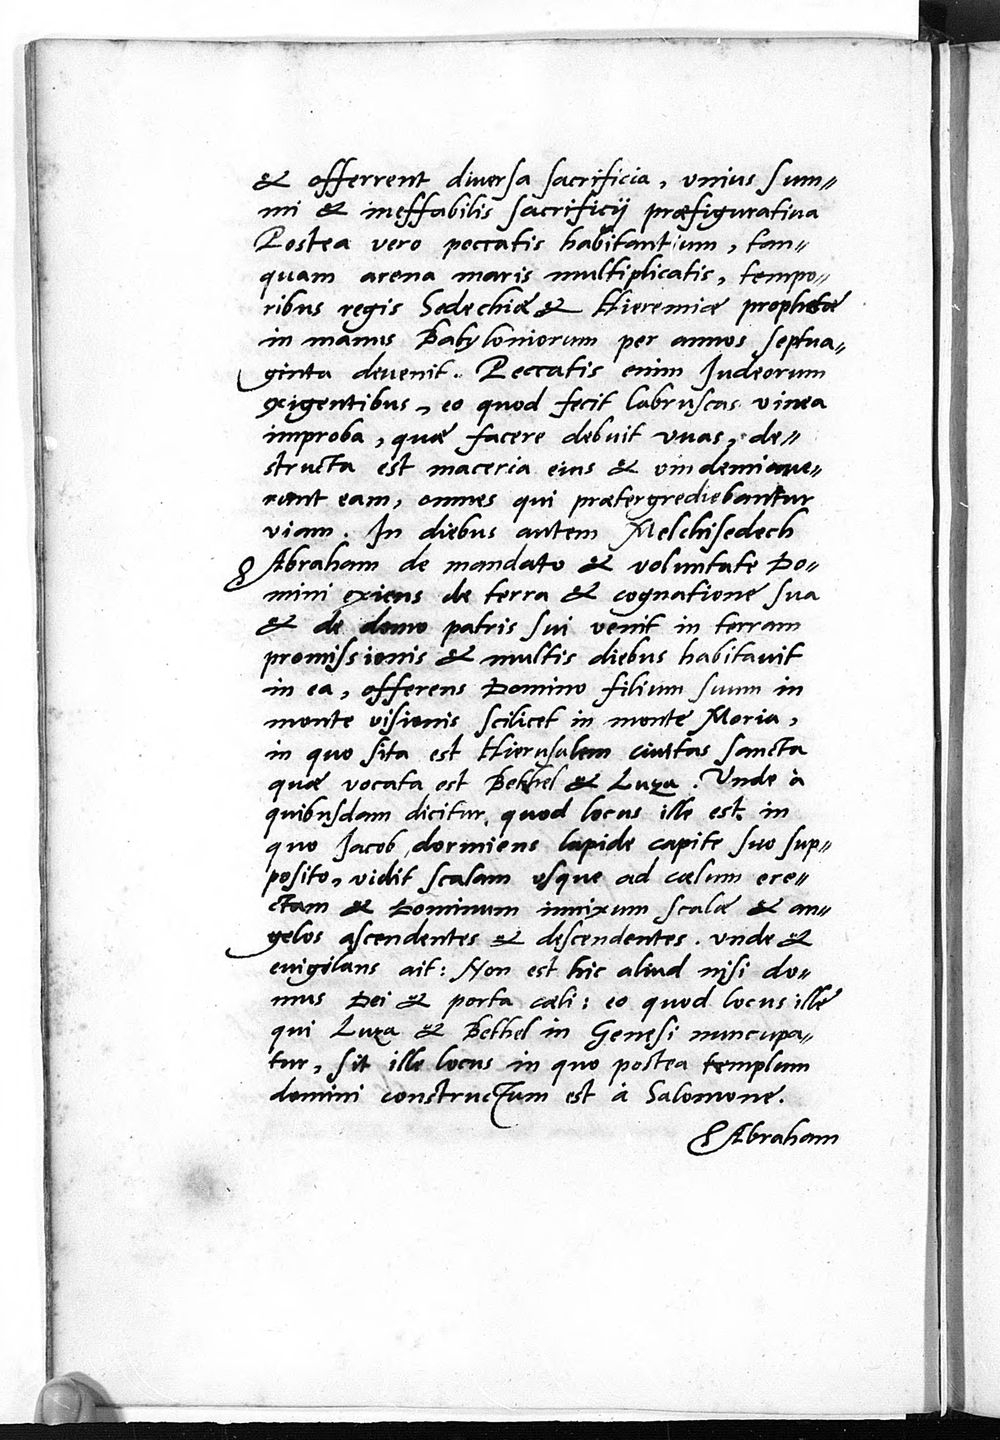 & offerrent diuersa sacrificia, vnius sum„
mi & ineffabilis sacrificij præfiguratiua
Postea vero peccatis habitantium, tan„
quam arena maris multiplicatis, tempo„
ribus regis Sedechiæ & Hieremiæ prophetæ
in manus Babyloniorum per annos septua„
ginta deuenit. Peccatis enim Judeorum
exigentibus, eo quod fecit labruscas vinea
improba, quæ facere debuit vuas, de„
structa est maceria eius & vindemiaue„
runt eam, omnes qui prætergrediebantur
viam. In diebus autem Melchisedech
Abraham de mandato & voluntate Do„
mini exiens de terra & cognatione sua
& de domo patris sui venit in terram
promissionis & multis diebus habitauit
in ea, offerens Domino filium suum in
monte visionis scilicet in monte Moria,
in quo sita est Hierusalem ciuitas sancta
quæ vocata est Bethel & Luza. Unde à
quibusdam dicitur, quod locus ille est in
quo Jacob dormiens lapide capite suo sup„
posito, vidit scalam vsque ad cælum ere„
ctam & Dominum innixum scalæ & an„
gelos ascendentes & descendentes. vnde &
euigilans ait: Non est hic aliud nisi do„
mus Dei & porta cæli: eo quod locus ille
qui Luza & Bethel in Genesi nuncupa„
tur, sit ille locus in quo postea templum
domini constructum est à Salomone.
Abraham